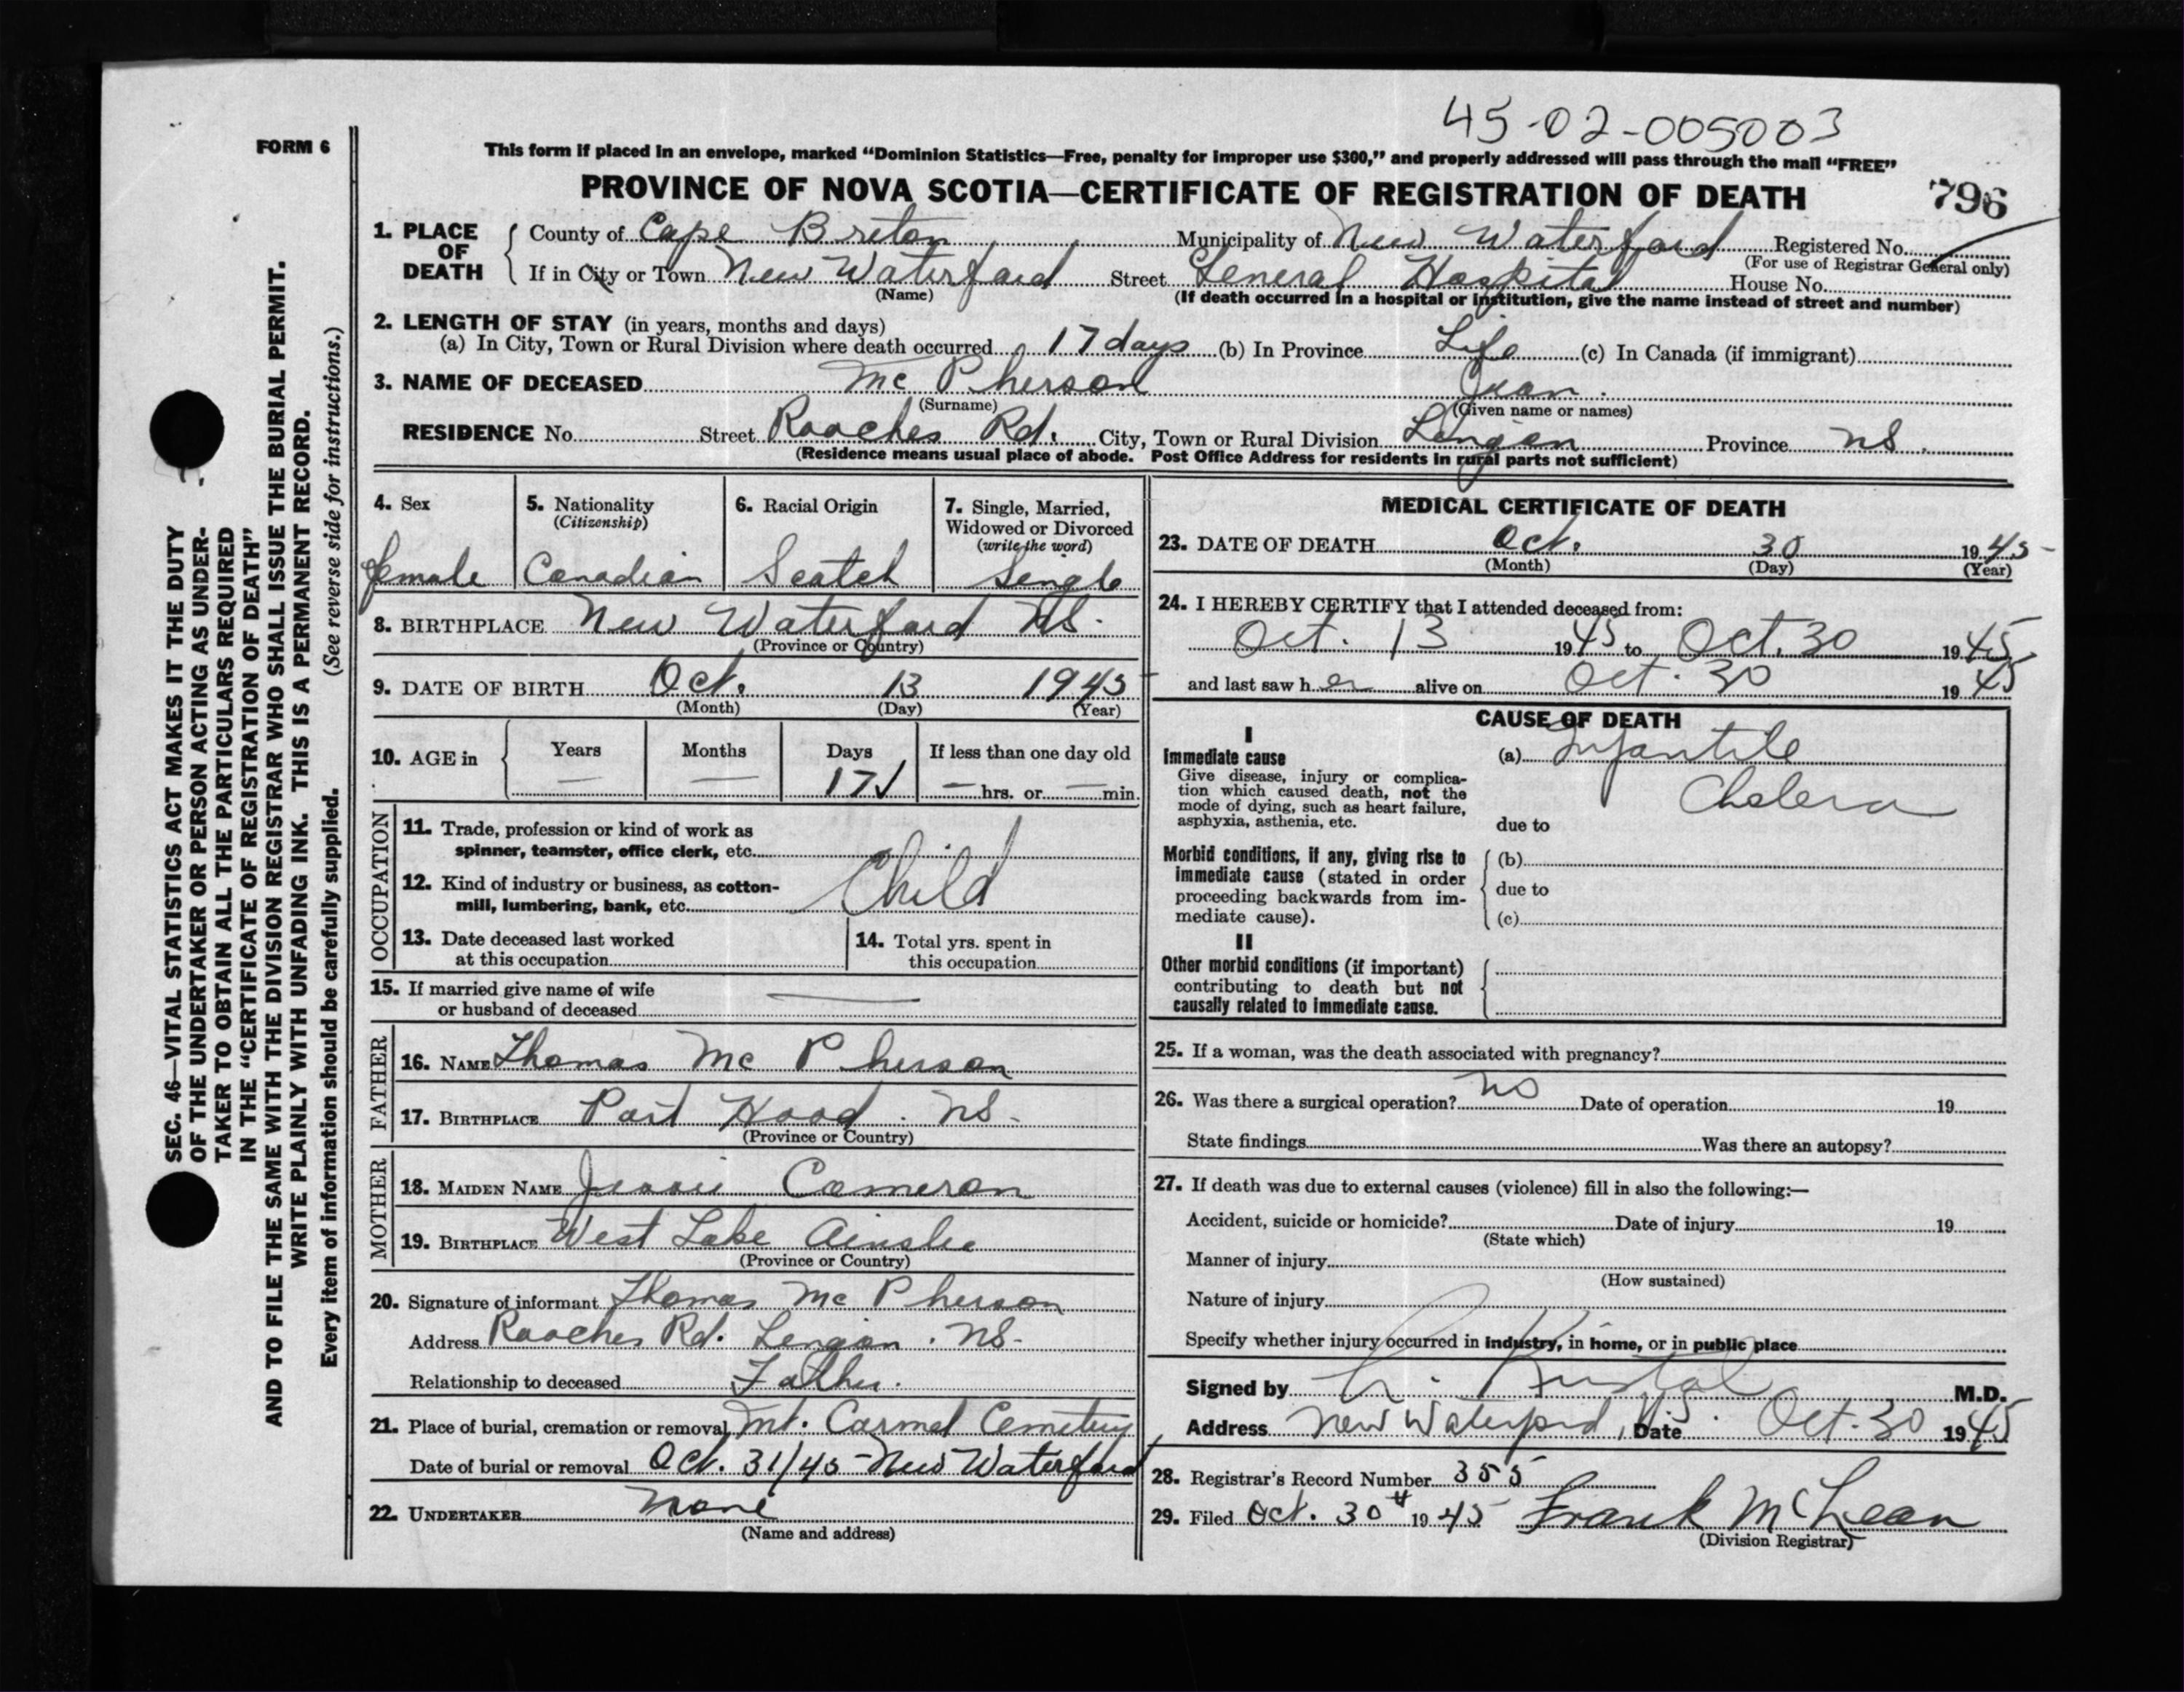 45-02-005003
FORM 6
This form if placed in an envelope, marked "Dominion Statistics—Free, penalty for improper use $300," and properly addressed will pass through the mail "FREE"
PROVINCE OF NOVA SCOTIA—CERTIFICATE OF REGISTRATION OF DEATH
796
1. PLACE OF DEATH
County of Cape Breton Municipality of New Waterford Registered No.
(For use of Registrar General only)
If in City or Town New Waterford Street General Hospital House No.
(Name) (If death occurred in a hospital or institution, give the name instead of street and number)
2. LENGTH OF STAY (in years, months and days)
(a) In City, Town or Rural Division where death occurred 17 days (b) In Province Life (c) In Canada (if immigrant)
3. NAME OF DECEASED Mc Pherson Jean
(Surname) (Given name or names)
RESIDENCE No. Street Roaches Rd. City, Town or Rural Division Lingan Province NS.
(Residence means usual place of abode. Post Office Address for residents in rural parts not sufficient)
4. Sex
female
5. Nationality
(Citizenship)
Canadian
6. Racial Origin
Scotch
7. Single, Married, Widowed or Divorced
(write the word)
Single
8. BIRTHPLACE New Waterford NS.
(Province or Country)
9. DATE OF BIRTH Oct. 13 1945
(Month) (Day) (Year)
10. AGE in Years — Months — Days 17 If less than one day old — hrs. or — min.
OCCUPATION
11. Trade, profession or kind of work as
spinner, teamster, office clerk, etc.
12. Kind of industry or business, as cotton-
mill, lumbering, bank, etc.
Child
13. Date deceased last worked
at this occupation
14. Total yrs. spent in
this occupation
15. If married give name of wife
or husband of deceased —
FATHER
16. NAME Thomas Mc Pherson
17. BIRTHPLACE Port Hood. NS.
(Province or Country)
MOTHER
18. MAIDEN NAME Jessie Cameron
19. BIRTHPLACE West Lake Ainslie
(Province or Country)
20. Signature of informant Thomas Mc Pherson
Address Roaches Rd. Lingan. NS.
Relationship to deceased Father.
21. Place of burial, cremation or removal Mt. Carmel Cemetery
Date of burial or removal Oct. 31/45 - New Waterford
22. UNDERTAKER None
(Name and address)
MEDICAL CERTIFICATE OF DEATH
23. DATE OF DEATH Oct. 30 1945
(Month) (Day) (Year)
24. I HEREBY CERTIFY that I attended deceased from:
Oct. 13 1945 to Oct. 30 1945
and last saw her alive on Oct. 30 1945
CAUSE OF DEATH
I
Immediate cause
Give disease, injury or complica-
tion which caused death, not the
mode of dying, such as heart failure,
asphyxia, asthenia, etc.
(a) Infantile
Cholera
due to
Morbid conditions, if any, giving rise to
immediate cause (stated in order
proceeding backwards from im-
mediate cause).
(b)
due to
(c)
II
Other morbid conditions (if important)
contributing to death but not
causally related to immediate cause.
25. If a woman, was the death associated with pregnancy?
26. Was there a surgical operation? no Date of operation 19
State findings Was there an autopsy?
27. If death was due to external causes (violence) fill in also the following:—
Accident, suicide or homicide? Date of injury 19
(State which)
Manner of injury
(How sustained)
Nature of injury
Specify whether injury occurred in industry, in home, or in public place
Signed by M.D.
Address New Waterford, N.S. Date Oct. 30 1945
28. Registrar's Record Number 355
29. Filed Oct. 30th 1945 Frank McLean
(Division Registrar)
SEC. 46—VITAL STATISTICS ACT MAKES IT THE DUTY
OF THE UNDERTAKER OR PERSON ACTING AS UNDER-
TAKER TO OBTAIN ALL THE PARTICULARS REQUIRED
IN THE "CERTIFICATE OF REGISTRATION OF DEATH"
AND TO FILE THE SAME WITH THE DIVISION REGISTRAR WHO SHALL ISSUE THE BURIAL PERMIT.
WRITE PLAINLY WITH UNFADING INK. THIS IS A PERMANENT RECORD.
Every item of information should be carefully supplied. (See reverse side for instructions.)